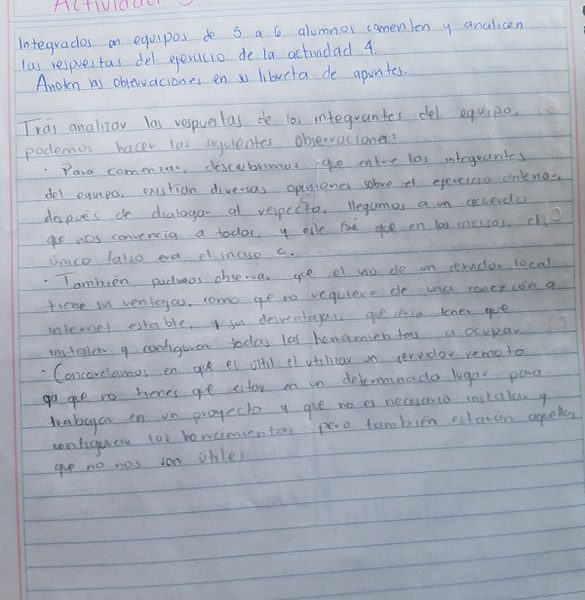 Actividad
Integrados en equipos de 5 a 6 alumnos comenten y analicen
las respuestas del ejercicio de la actividad 4.
Anoten las observaciones en su libreta de apuntes.
Tras analizar las respuestas de los integrantes del equipo,
podemos hacer las siguientes observaciones:
· Para comenzar, descubrimos que entre los integrantes
del equipo, existian diversas opiniones sobre el ejercicio
después de dialogar al respecto, llegamos a un acuerdo
qe nos convencia a todos, y este fue que en los incisos, el
único falso era el inciso c.
· También pudimos observar que el uso de un servidor local
tiene sus ventajas, como qe no requiere de una conexión a
internet estable, y sus desventajas, que seria tener que
instalar y configurar todas las herramientas a ocupar.
· Concordamos en qué es útil el utilizar un servidor remoto
ya qe no tienes qe estar en un determinado lugar para
trabajar en un proyecto y que no es necesario instalar y
configurar las herramientas, pero también estarán aquellas
que no nos son útiles